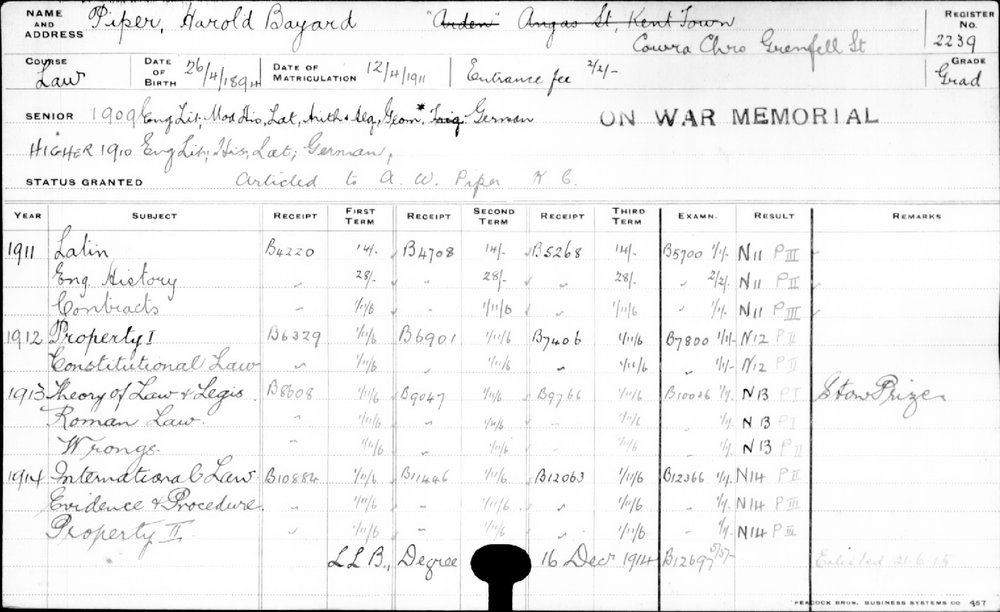 NAME AND ADDRESS Piper, Harold Bayard "Arden" Angas St, Kent Town REGISTER No. 2239
Cowra Chrs Grenfell St
COURSE Law DATE OF BIRTH 26/4/1894 DATE OF MATRICULATION 12/4/1911 Entrance fee 2/2/- GRADE Grad
SENIOR 1909 Eng Lit, Mod His, Lat, Arith & Alg, Geom,* Trig German ON WAR MEMORIAL
HIGHER 1910 Eng Lit; His; Lat; German,
STATUS GRANTED Articled to A. W. Piper K C.
YEAR SUBJECT RECEIPT FIRST TERM RECEIPT SECOND TERM RECEIPT THIRD TERM EXAMN. RESULT REMARKS
1911 Latin B4220 14/- B4708 14/- B5268 14/- B5700 1/1/- N11 P III
Eng. History " 28/- " 28/- " 28/- " 2/2/- N11 P II
Contracts " 1/11/6 " 1/11/6 " 1/11/6 " 1/1/- N11 P III
1912 Property I B6329 1/11/6 B6901 1/11/6 B7406 1/11/6 B7800 1/1/- N12 P II
Constitutional Law " 1/11/6 1/11/6 " 1/11/6 " 1/1/- N12 P II
1913 Theory of Law & Legis. B8608 1/11/6 B9047 1/11/6 B9766 1/11/6 B10026 1/1/- N13 P I Stow Prize
Roman Law. " 1/11/6 " 1/11/6 " 1/11/6 " 1/1/- N13 P I
Wrongs. " 1/11/6 " 1/11/6 " 1/11/6 " 1/1/- N13 P II
1914 International Law B10884 1/11/6 B11446 1/11/6 B12063 1/11/6 B12366 1/1/- N14 P II
Evidence & Procedure. " 1/11/6 " 1/11/6 " 1/11/6 " 1/1/- N14 P III
Property II " 1/11/6 " 1/11/6 " 1/11/6 " 1/1/- N14 P III
LLB., Degree 16 Decr 1914 B12697 5/5/- Enlisted 21.6.15
PEACOCK BROS. BUSINESS SYSTEMS CO 457